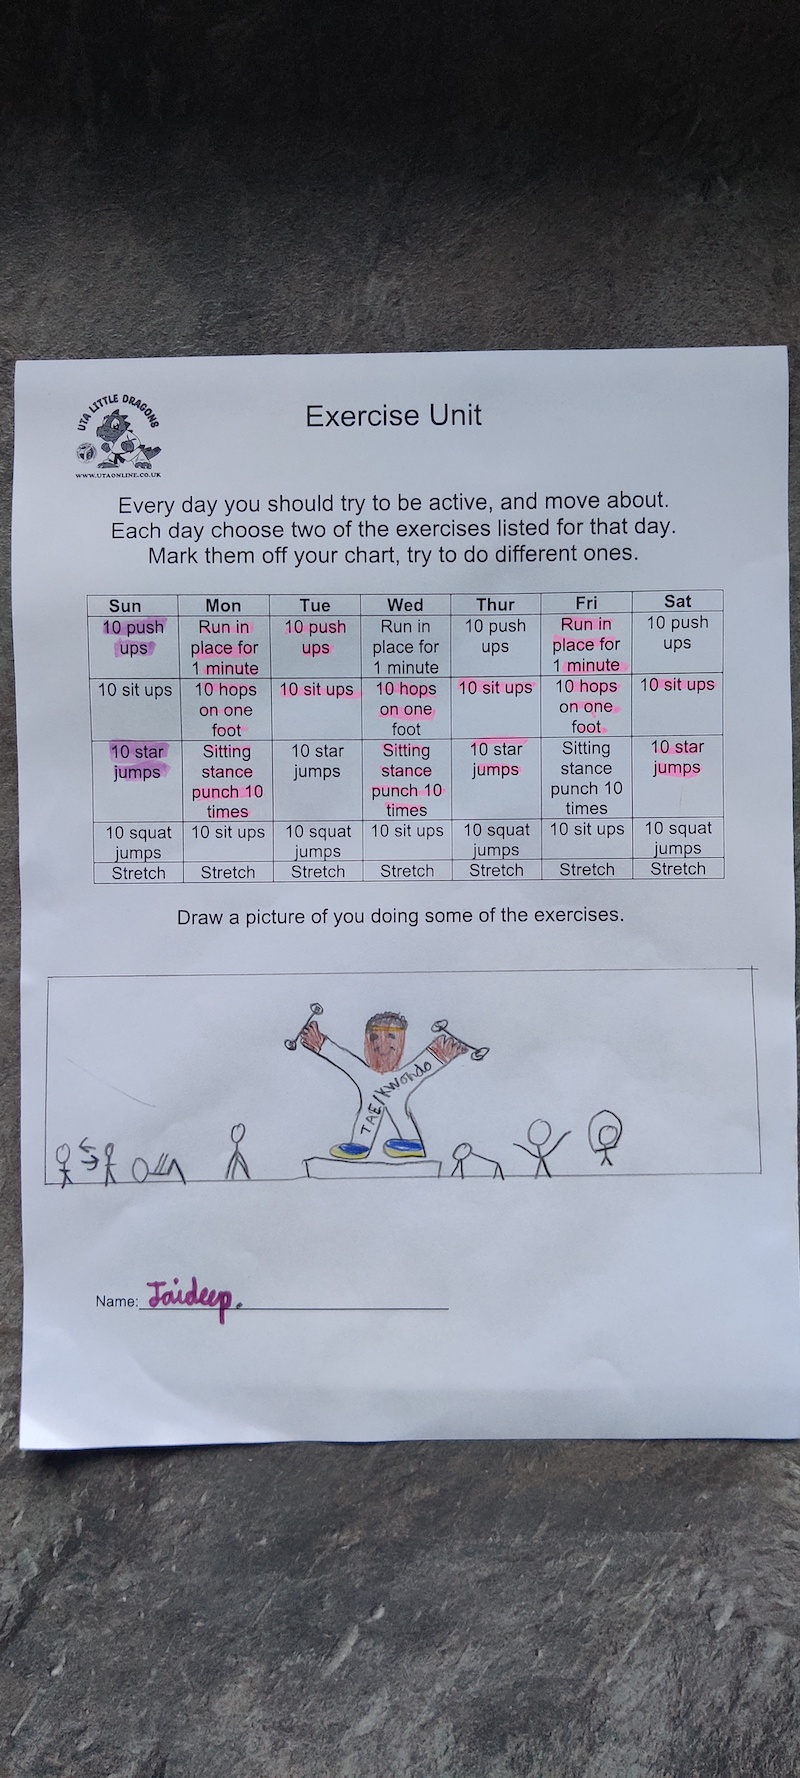 UTA LITTLE DRAGONS
WWW.UTAONLINE.CO.UK
Exercise Unit
Every day you should try to be active, and move about.
Each day choose two of the exercises listed for that day.
Mark them off your chart, try to do different ones.
Sun Mon Tue Wed Thur Fri Sat
10 push Run in 10 push Run in 10 push Run in 10 push
ups place for ups place for ups place for ups
1 minute 1 minute 1 minute
10 sit ups 10 hops 10 sit ups 10 hops 10 sit ups 10 hops 10 sit ups
on one on one on one
foot foot foot
10 star Sitting 10 star Sitting 10 star Sitting 10 star
jumps stance jumps stance jumps stance jumps
punch 10 punch 10 punch 10
times times times
10 squat 10 sit ups 10 squat 10 sit ups 10 squat 10 sit ups 10 squat
jumps jumps jumps jumps
Stretch Stretch Stretch Stretch Stretch Stretch Stretch
Draw a picture of you doing some of the exercises.
TAEKWondo
Name: Jaideep.